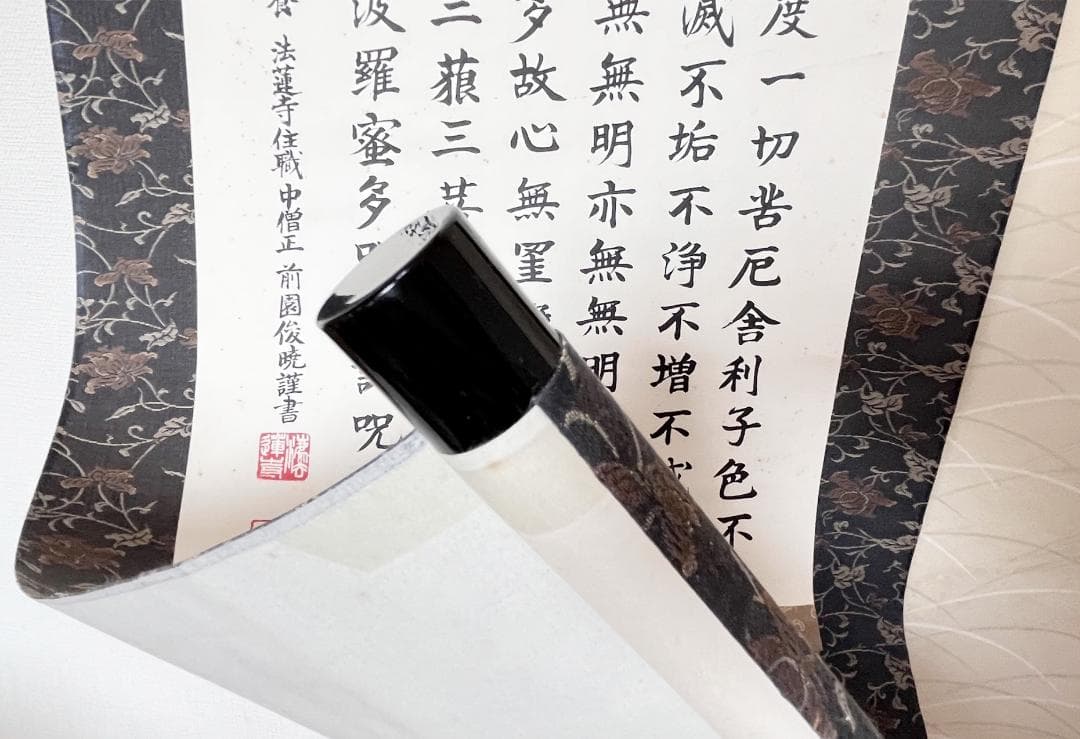 度一切苦厄舍利子色不
滅不垢不浄不増不
無無明亦無無明
多故心無罣
三藐三
波羅蜜多 呪
養 法蓮寺住職 中僧正 前園俊暁謹書
法蓮寺